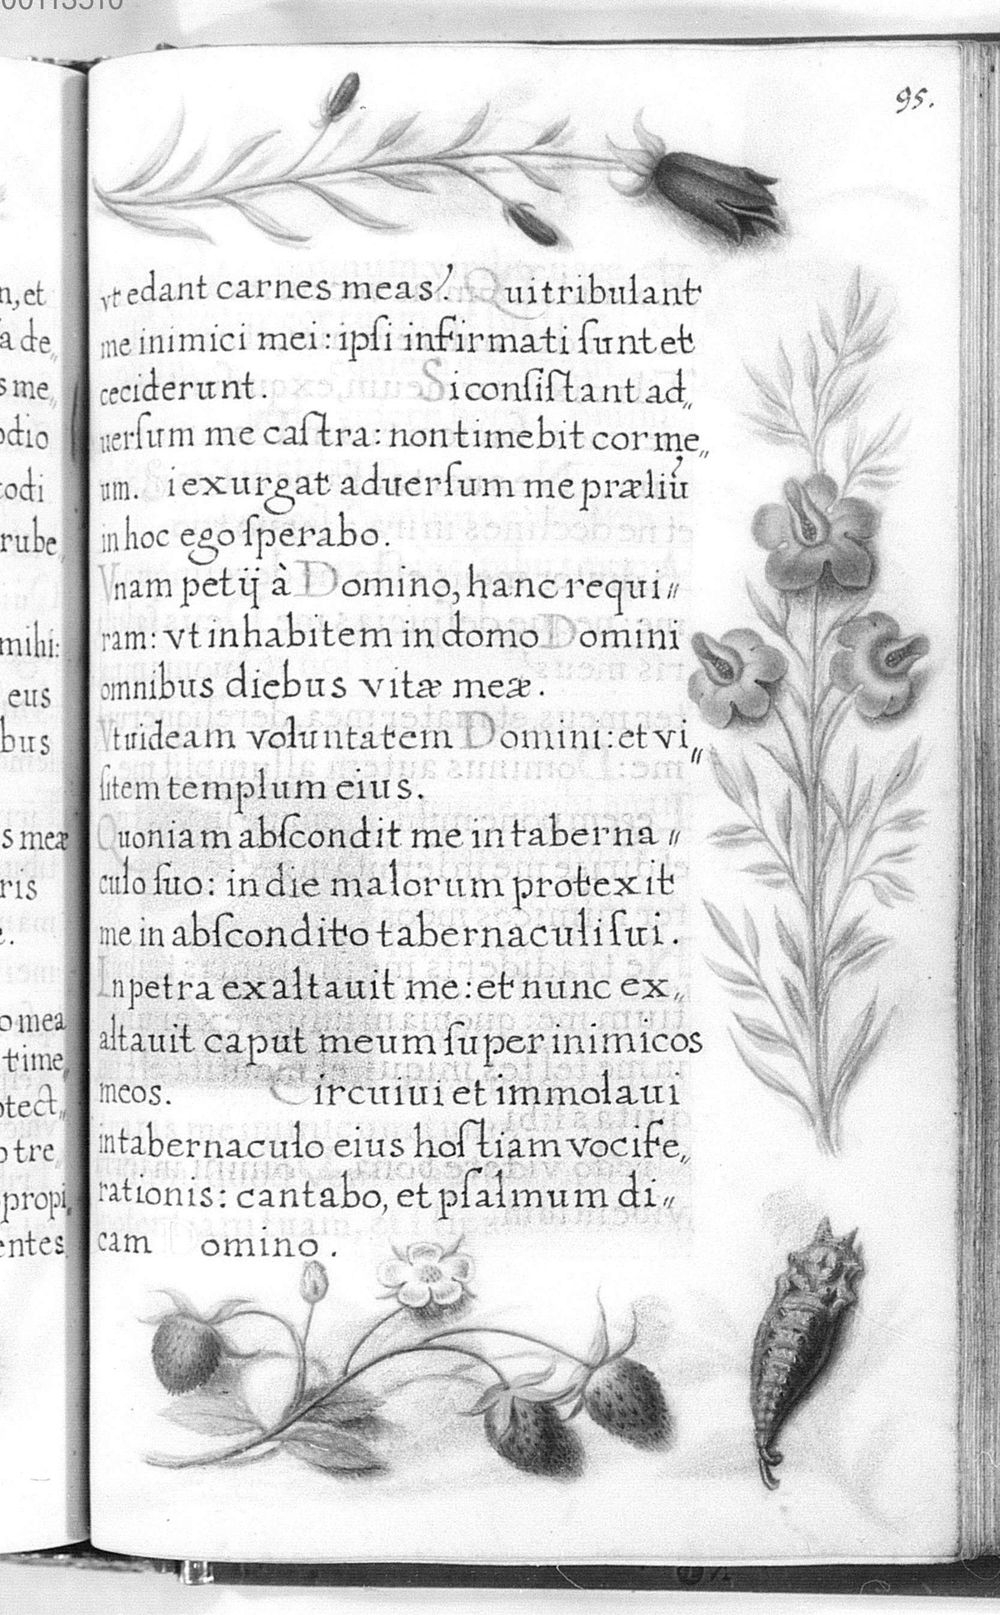 00113510
95.
vt edant carnes meas? Qui tribulant
me inimici mei: ipſi infirmati ſunt et
ceciderunt. Si conſiſtant ad„
uerſum me caſtra: non timebit cor me„
um. i exurgat aduerſum me præliũ
in hoc ego ſperabo.
Vnam petij à Domino, hanc requi„
ram: vt inhabitem in domo Domini
omnibus diebus vitæ meæ.
Vt uideam voluntatem Domini: et vi„
ſitem templum eius.
Quoniam abſcondit me in taberna„
culo ſuo: in die malorum protexit
me in abſcondito tabernaculi ſui.
In petra exaltauit me: et nunc ex„
altauit caput meum ſuper inimicos
meos. Circuiui et immolaui
in tabernaculo eius hoſtiam vocife„
rationis: cantabo, et pſalmum di„
cam omino.
n, et
a de„
s me„
odio
todi
rube„
mihi:
eus
bus
s meæ
ris
o mea
time„
otect„
o tre„
propi„
entes